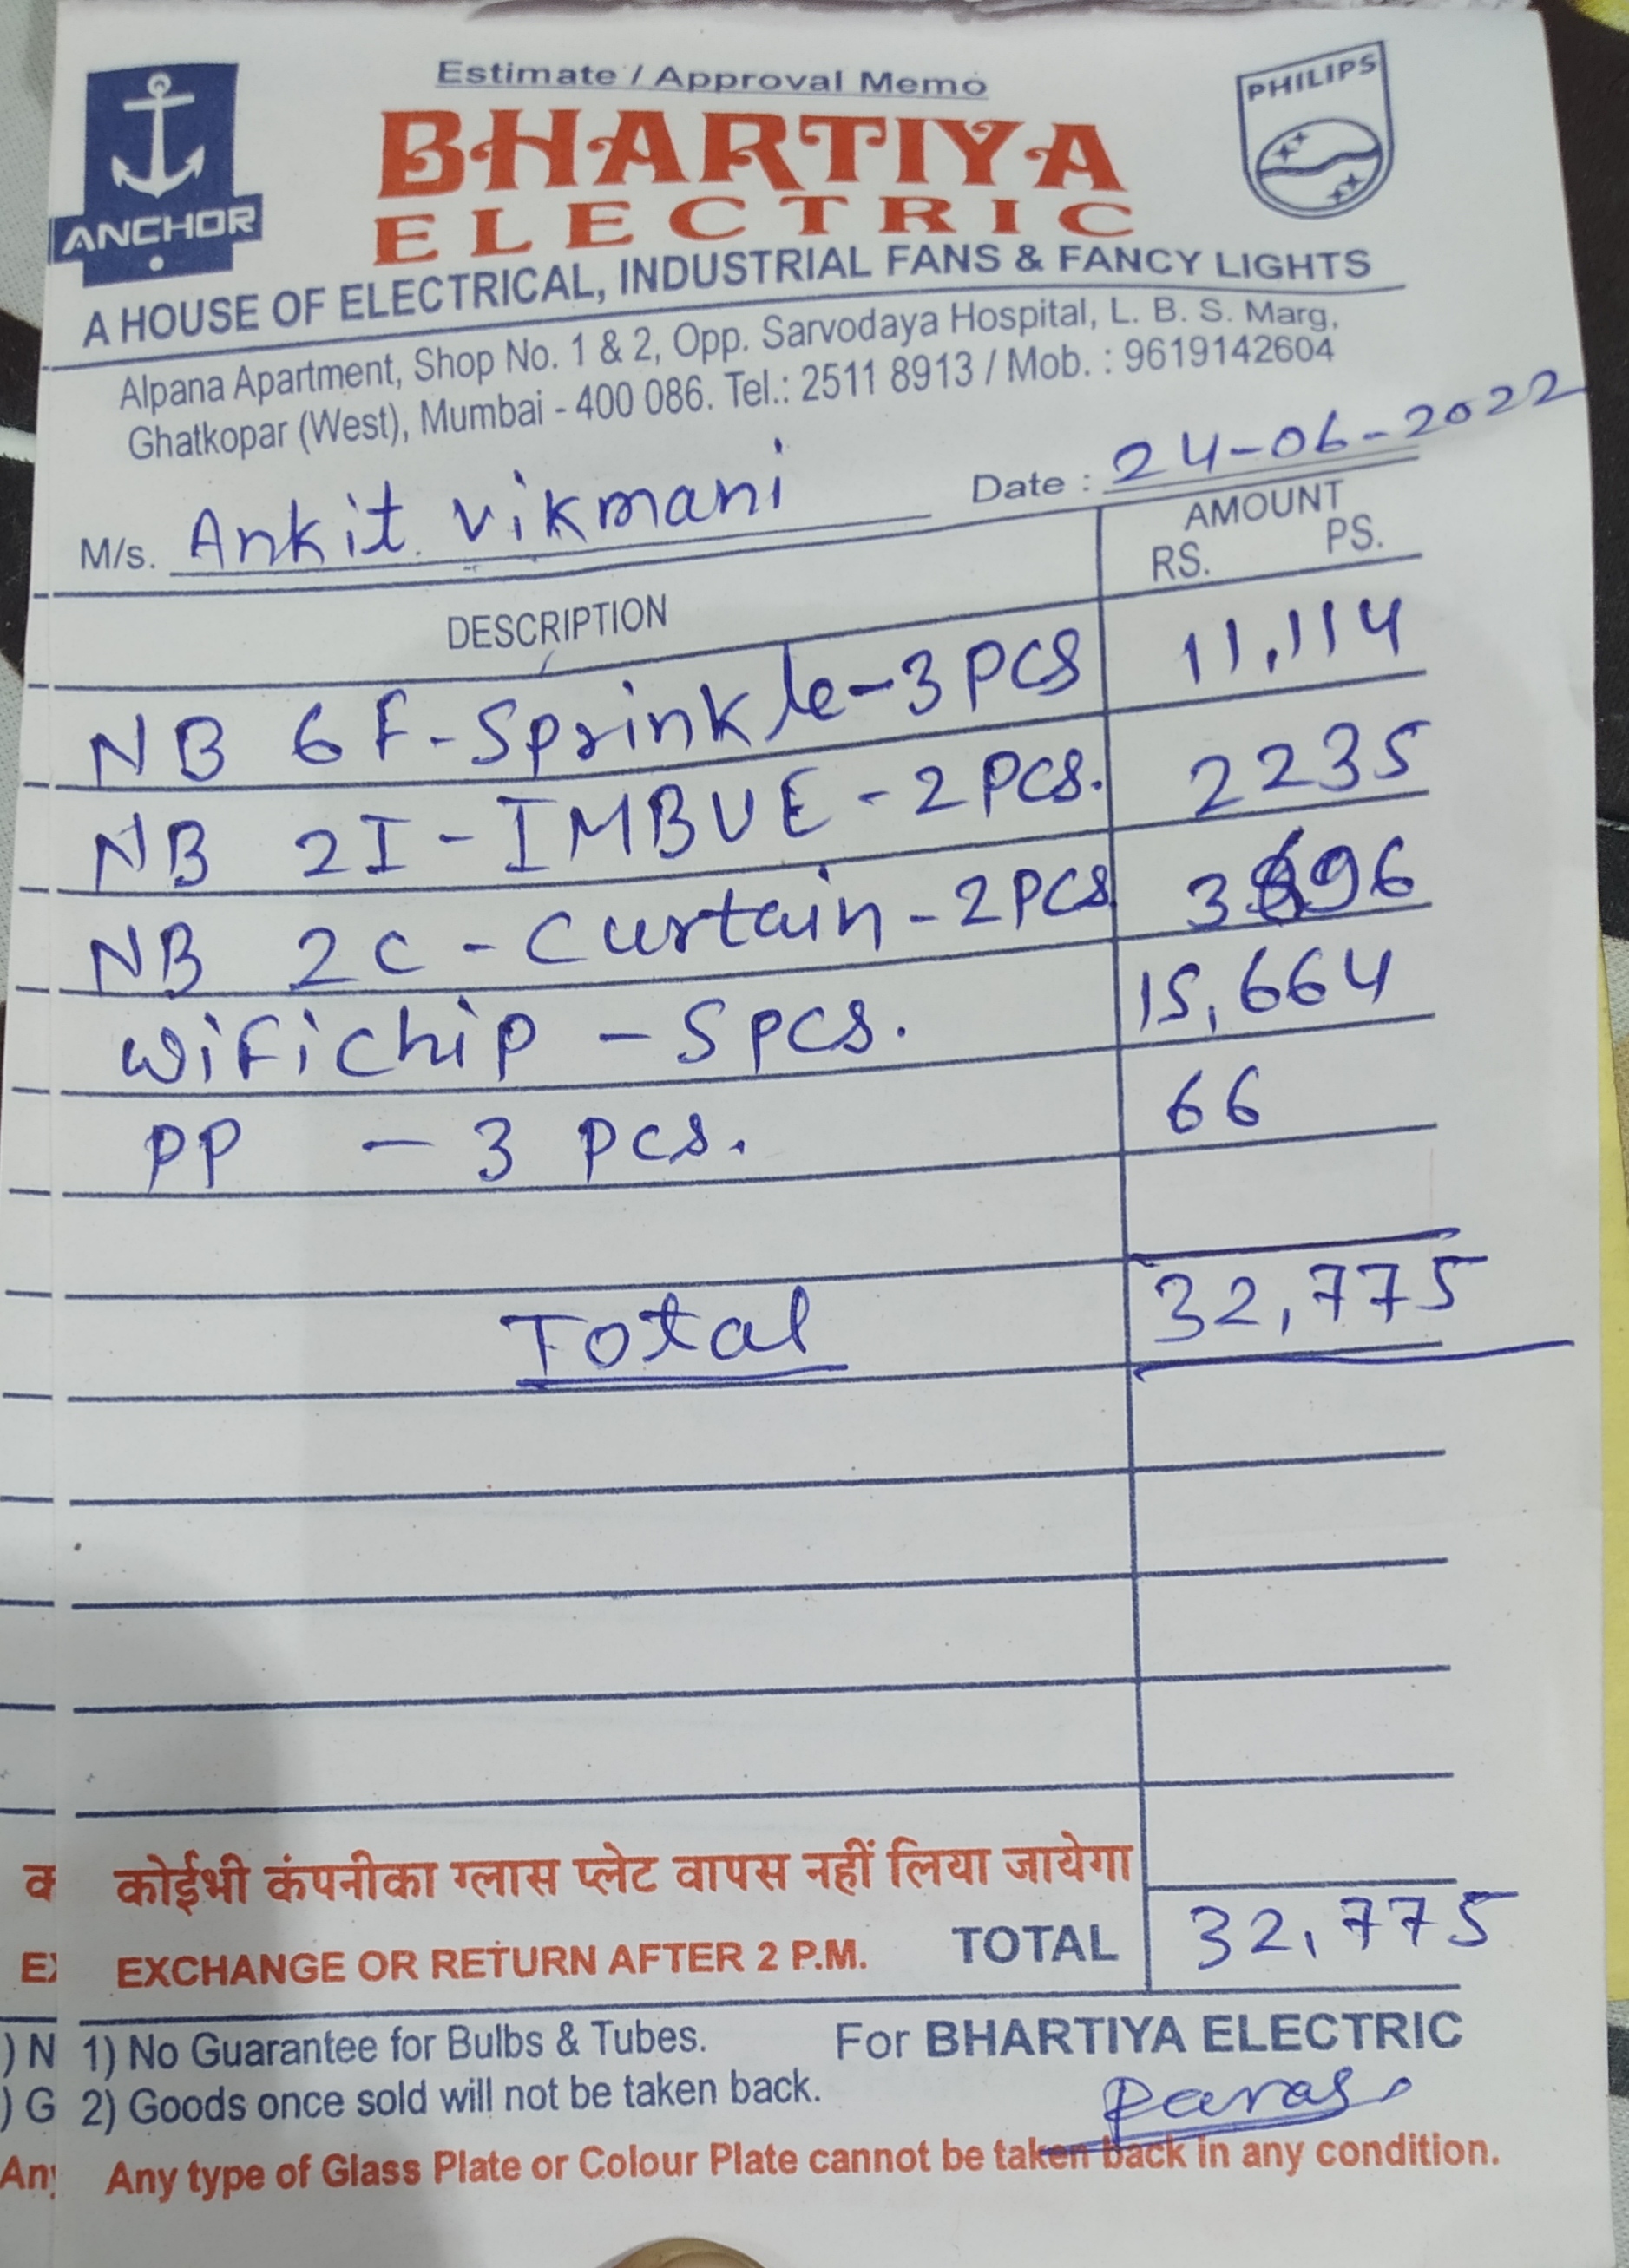 Estimate / Approval Memo
ANCHOR
PHILIPS
BHARTIYA
ELECTRIC
A HOUSE OF ELECTRICAL, INDUSTRIAL FANS & FANCY LIGHTS
Alpana Apartment, Shop No. 1 & 2, Opp. Sarvodaya Hospital, L. B. S. Marg,
Ghatkopar (West), Mumbai - 400 086. Tel.: 2511 8913 / Mob. : 9619142604
M/s. Ankit vikmani Date : 24-06-2022
DESCRIPTION AMOUNT
RS. PS.
NB 6F-Sprinkle-3 PCS 11,114
NB 2I-IMBUE-2 PCS. 2235
NB 2C-Curtain-2PCS 3696
WiFichip - 5 pcs. 15,664
PP - 3 pcs. 66
Total 32,775
कोईभी कंपनीका ग्लास प्लेट वापस नहीं लिया जायेगा
EXCHANGE OR RETURN AFTER 2 P.M. TOTAL 32,775
1) No Guarantee for Bulbs & Tubes. For BHARTIYA ELECTRIC
2) Goods once sold will not be taken back. Paras
Any type of Glass Plate or Colour Plate cannot be taken back in any condition.